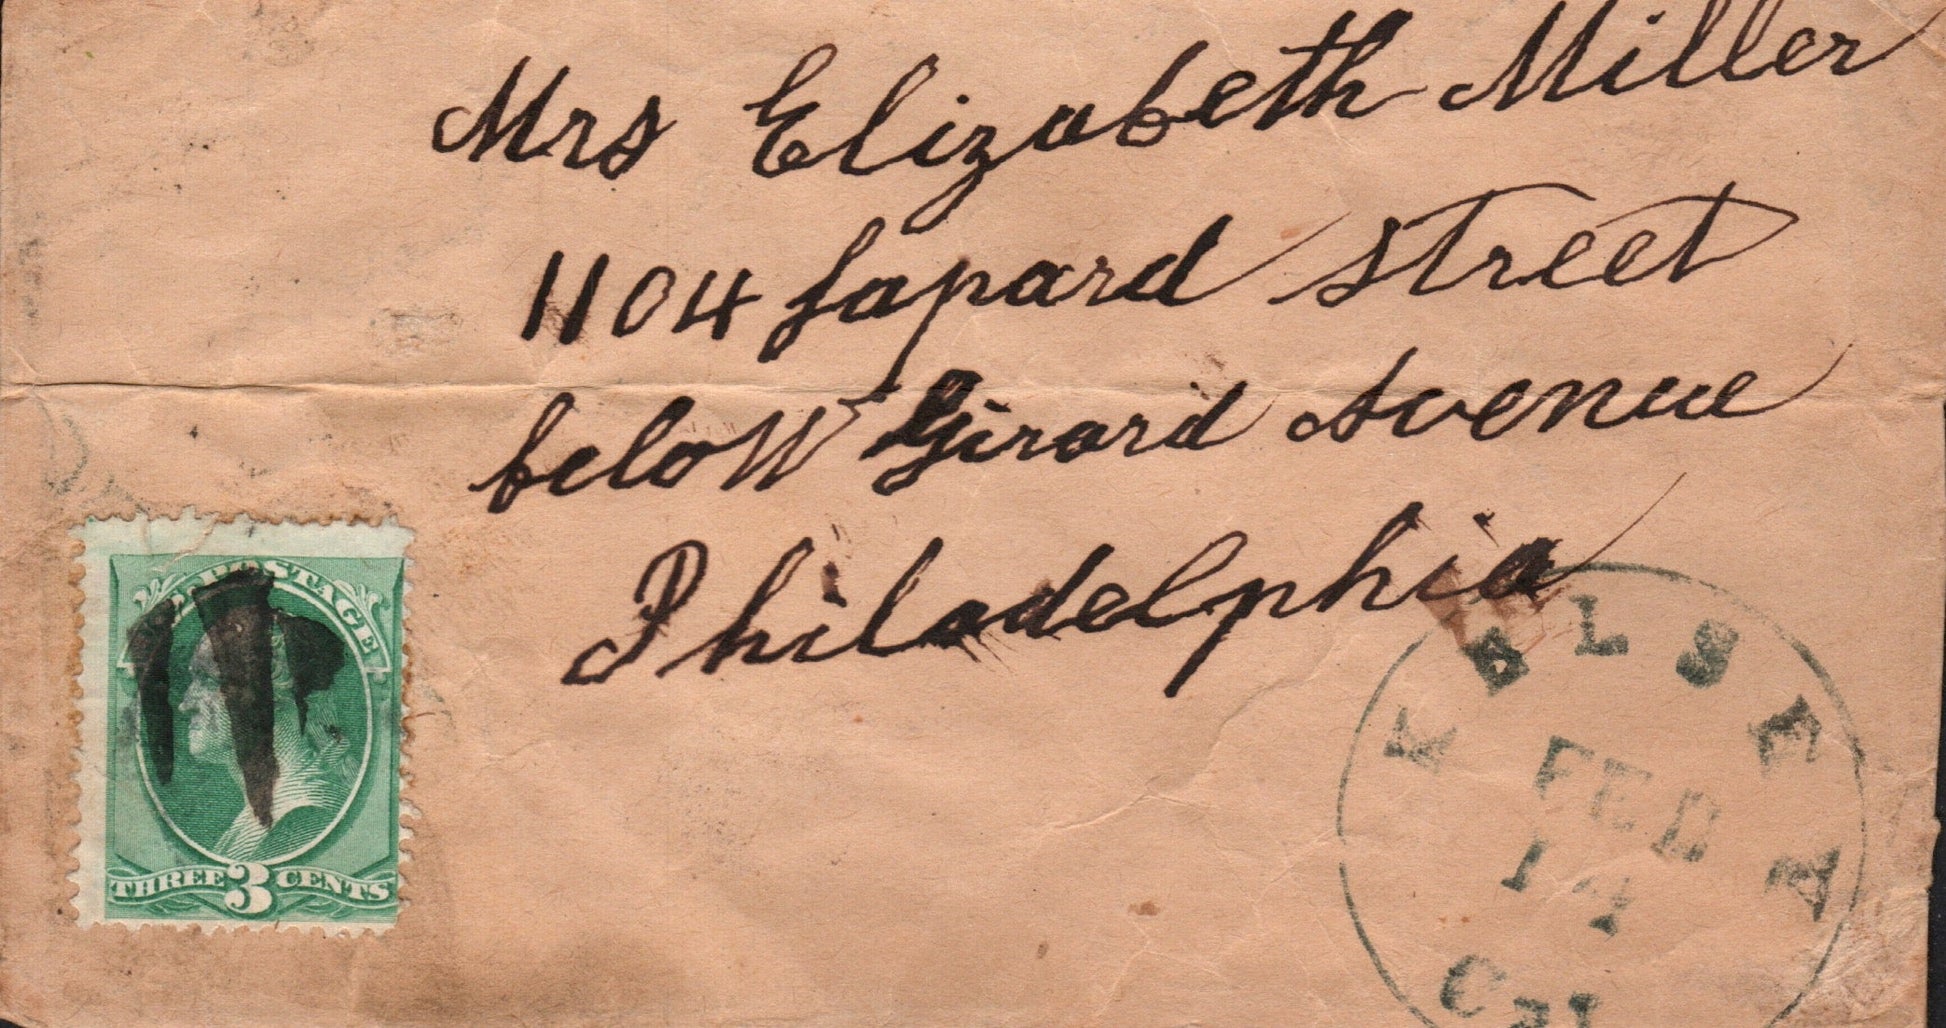 Mrs Elizabeth Miller
1104 Sapard Street
below Girard Avenue
Philadelphia
POSTAGE
THREE 3 CENTS
KELSEY
FEB
14
Cal